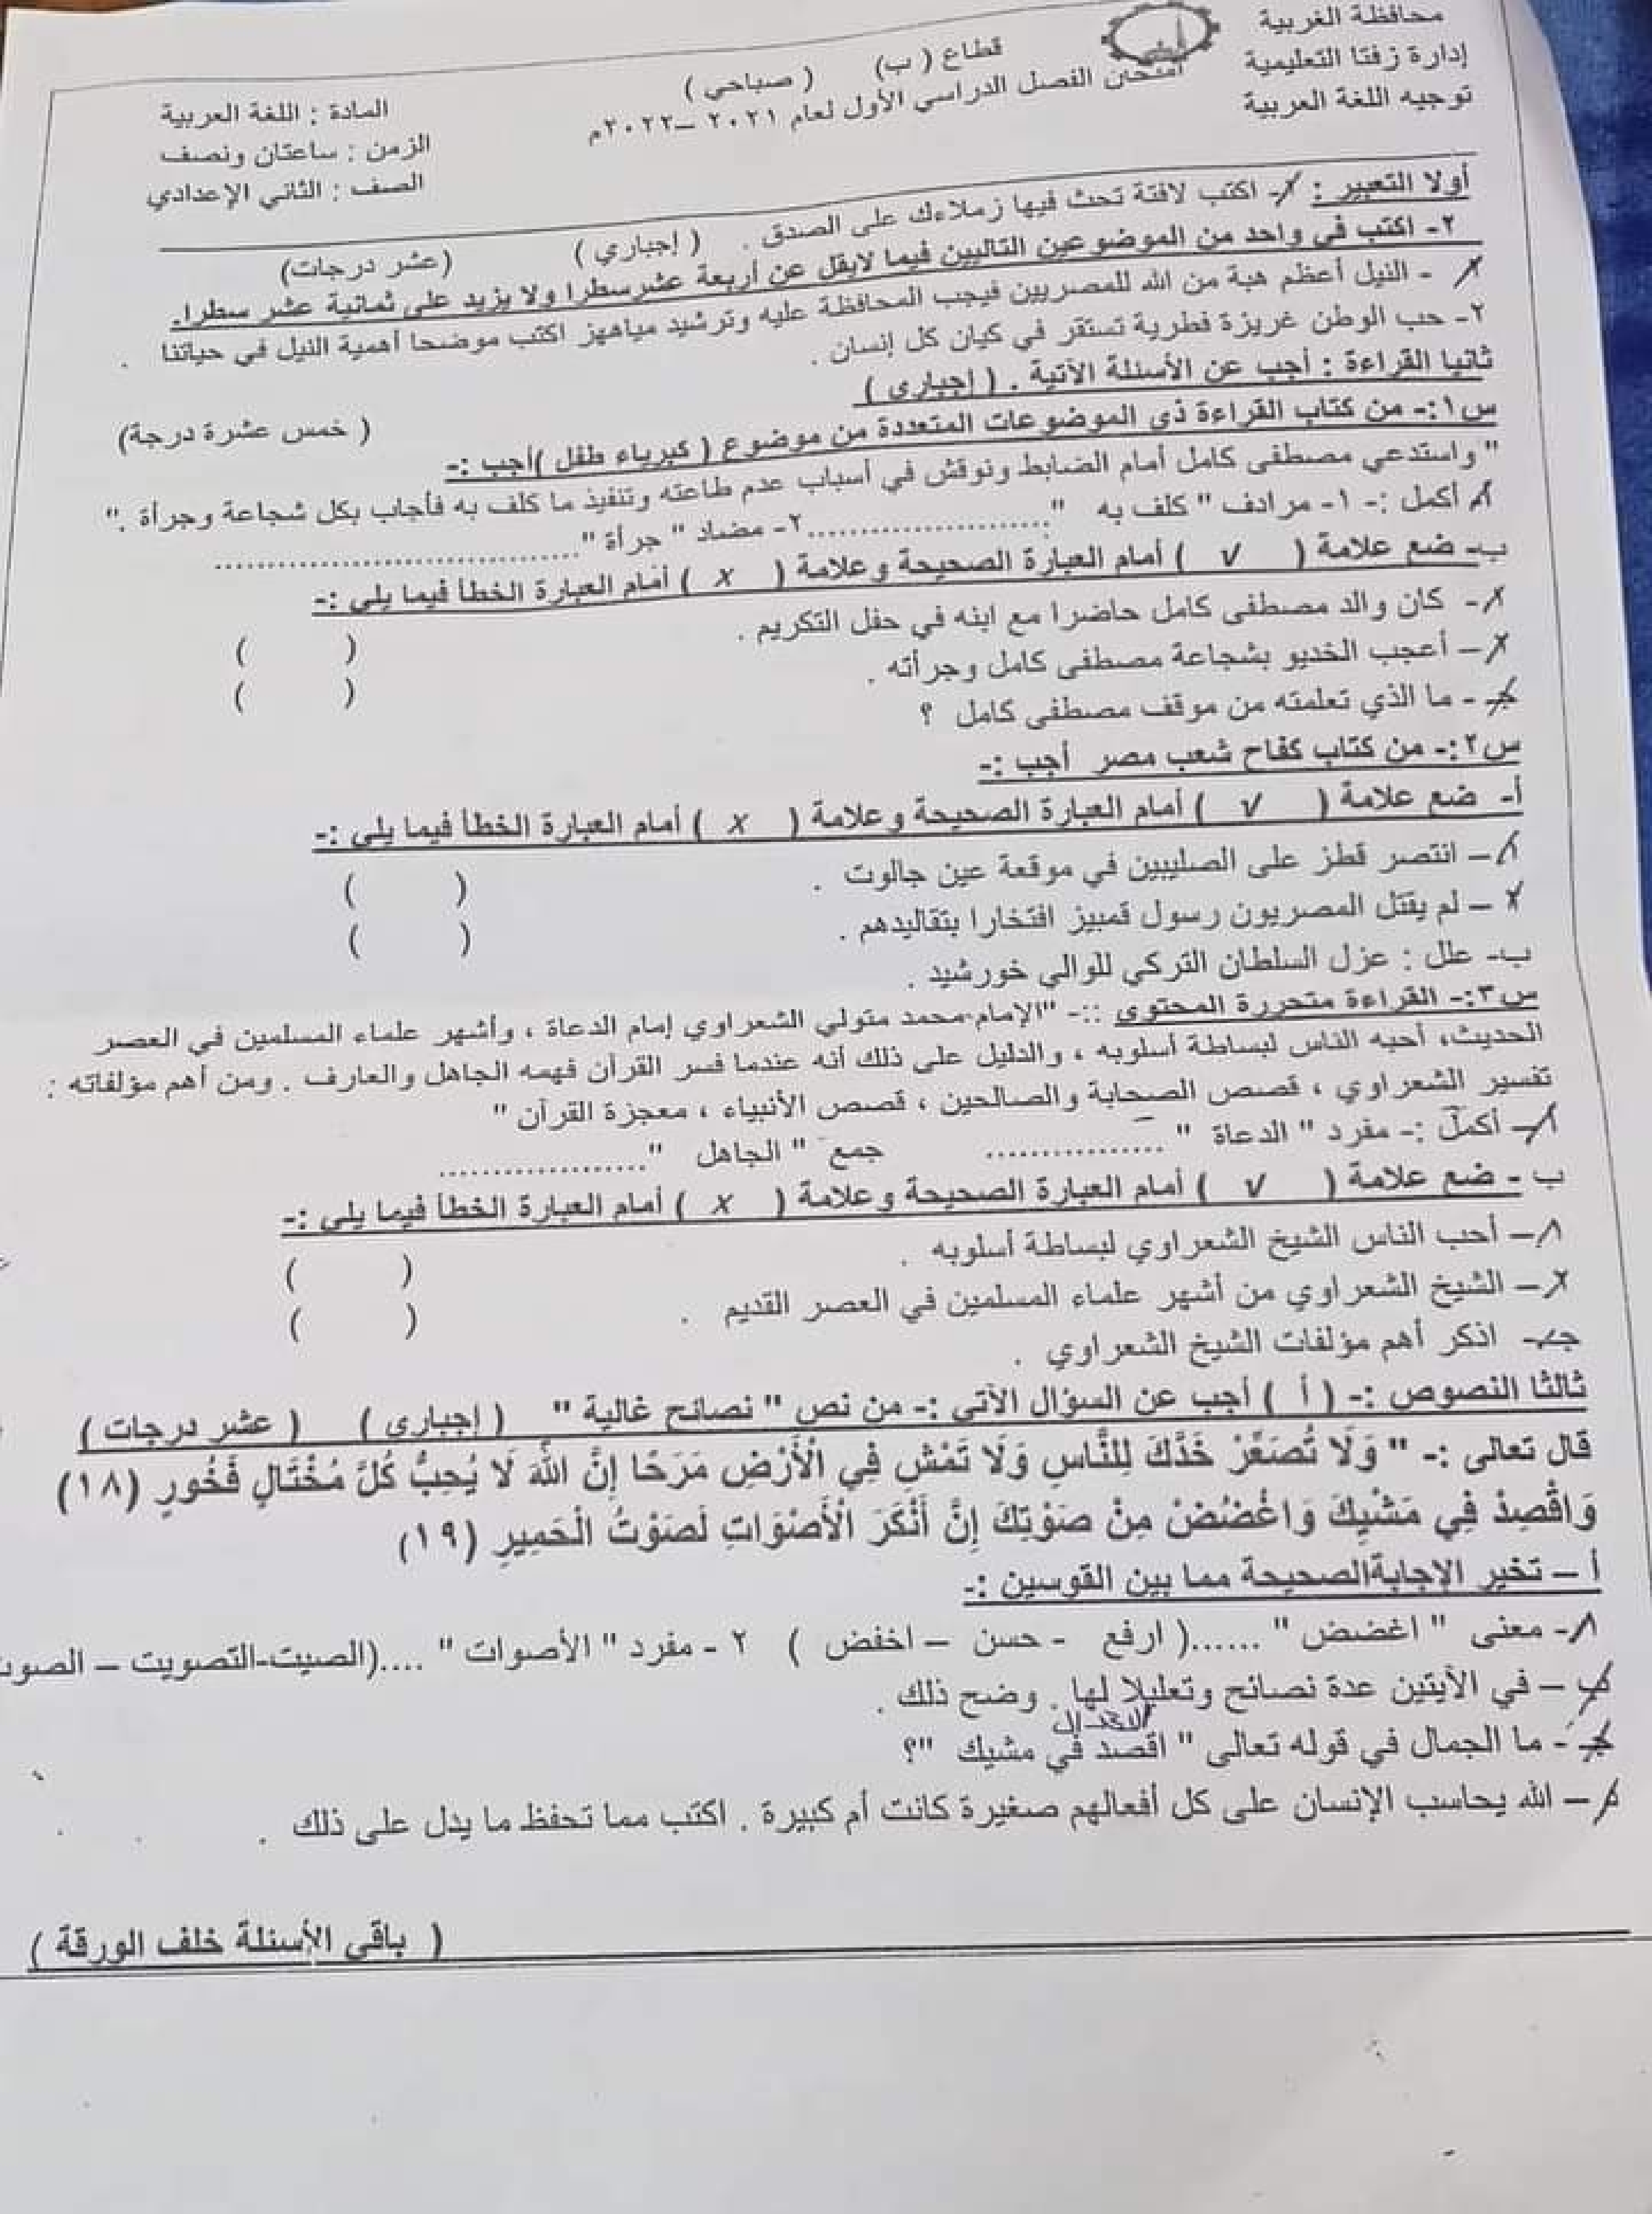 محافظة الغربية
إدارة زفتا التعليمية
توجيه اللغة العربية
قطاع ( ب ) ( صباحي )
امتحان الفصل الدراسي الأول لعام ٢٠٢١ – ٢٠٢٢م
المادة : اللغة العربية
الزمن : ساعتان ونصف
الصف : الثاني الإعدادي
أولا التعبير : ١- اكتب لافتة تحث فيها زملاءك على الصدق . ( إجباري ) (عشر درجات)
٢- اكتب في واحد من الموضوعين التاليين فيما لايقل عن أربعة عشر سطرا ولا يزيد على ثمانية عشر سطرا.
١ - النيل أعظم هبة من الله للمصريين فيجب المحافظة عليه وترشيد مياههز اكتب موضحا أهمية النيل في حياتنا .
٢- حب الوطن غريزة فطرية تستقر في كيان كل إنسان .
ثانيا القراءة : أجب عن الأسئلة الآتية . ( إجبارى )
س١:- من كتاب القراءة ذي الموضوعات المتعددة من موضوع ( كبرياء طفل )أجب :- ( خمس عشرة درجة)
" واستدعي مصطفى كامل أمام الضابط ونوقش في أسباب عدم طاعته وتنفيذ ما كلف به فأجاب بكل شجاعة وجرأة ."
أ- أكمل :- ١- مرادف " كلف به " ...................... ٢- مضاد " جرأة "..............................
ب- ضع علامة ( √ ) أمام العبارة الصحيحة وعلامة ( x ) أمام العبارة الخطأ فيما يلي :-
١- كان والد مصطفى كامل حاضرا مع ابنه في حفل التكريم . ( )
٢– أعجب الخديو بشجاعة مصطفى كامل وجرأته . ( )
جـ - ما الذي تعلمته من موقف مصطفى كامل ؟
س٢:- من كتاب كفاح شعب مصر أجب :-
أ- ضع علامة ( √ ) أمام العبارة الصحيحة وعلامة ( x ) أمام العبارة الخطأ فيما يلي :-
١– انتصر قطز على الصليبين في موقعة عين جالوت . ( )
٢ – لم يقتل المصريون رسول قمبيز افتخارا بتقاليدهم . ( )
ب- علل : عزل السلطان التركي للوالي خورشيد .
س٣:- القراءة متحررة المحتوى ::- "الإمام محمد متولي الشعراوي إمام الدعاة ، وأشهر علماء المسلمين في العصر
الحديث، أحبه الناس لبساطة أسلوبه ، والدليل على ذلك أنه عندما فسر القرآن فهمه الجاهل والعارف . ومن أهم مؤلفاته :
تفسير الشعراوي ، قصص الصحابة والصالحين ، قصص الأنبياء ، معجزة القرآن "
أ– أكمل :- مفرد " الدعاة " ................ جمع " الجاهل "...................
ب - ضع علامة ( √ ) أمام العبارة الصحيحة وعلامة ( x ) أمام العبارة الخطأ فيما يلي :-
١– أحب الناس الشيخ الشعراوي لبساطة أسلوبه . ( )
٢– الشيخ الشعراوي من أشهر علماء المسلمين في العصر القديم . ( )
جـ- اذكر أهم مؤلفات الشيخ الشعراوي .
ثالثا النصوص :- ( أ ) أجب عن السؤال الآتي :- من نص " نصائح غالية " ( إجبارى ) ( عشر درجات )
قال تعالى :- " وَلَا تُصَعِّرْ خَدَّكَ لِلنَّاسِ وَلَا تَمْشِ فِي الْأَرْضِ مَرَحًا إِنَّ اللَّهَ لَا يُحِبُّ كُلَّ مُخْتَالٍ فَخُورٍ (١٨)
وَاقْصِدْ فِي مَشْيِكَ وَاغْضُضْ مِنْ صَوْتِكَ إِنَّ أَنْكَرَ الْأَصْوَاتِ لَصَوْتُ الْحَمِيرِ (١٩)
أ – تخير الإجابةالصحيحة مما بين القوسين :-
١- معنى " اغضض " ......( ارفع - حسن – اخفض ) ٢ - مفرد " الأصوات " ....(الصيت-التصويت – الصوت
ب – في الآيتين عدة نصائح وتعليلا لها . وضح ذلك .
جـ - ما الجمال في قوله تعالى " اقصد في مشيك "؟
د – الله يحاسب الإنسان على كل أفعالهم صغيرة كانت أم كبيرة . اكتب مما تحفظ ما يدل على ذلك .
( باقى الأسئلة خلف الورقة )